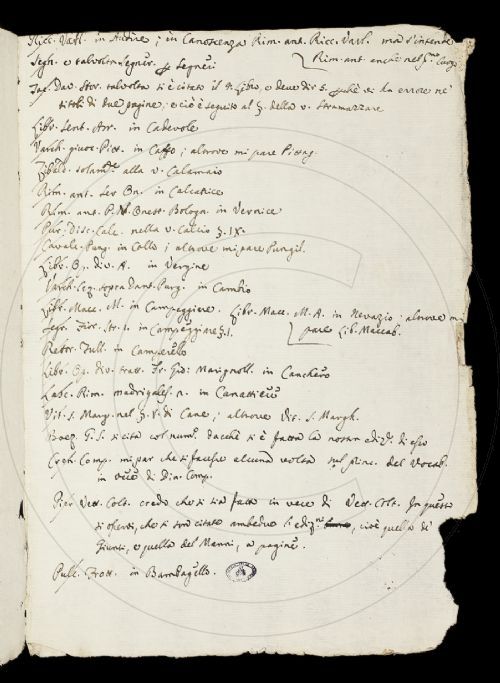 Ricc. Varl. in Ardire; in Canoscenza Rim. ant. Ricc. Varl. ma s'intende
Segn. e talvolta Segner. p Segneri Rim. ant. anche nel
Jac. Dav. Stor. talvolta si è citato il n. Libro, e deve dir 5. pchè vi ha errore ne'
titoli di due pagine; e ciò è seguito al §. della v. Stramazzare
Libr. Sent. Arr. in Cadevole
Varch. giuoc. Pitt. in Caffo; altrove mi pare Pittag.
Zibald. solamte alla v. Calamaio
Rim. ant. Ser On. in Calcatrice
Rim. ant. P. N. Bognett. Bologn. in Vernice
Pur. Disc. Calc. nella v. Calcio §. IX.
Cavalc. Pung. in Collo; altrove mi pare Pungil.
Libr. Op. div. A. in Vergine
Varch. Lez. sopra Dant. Purg. in Cambio
Libr. Macc. M. in Campeggiare. Libr. Macc. M. A. in altrove mi
Segr. Fior. Str. 1. in Campeggiare §. 1. pare Lib. Maccab.
Rettor. Tull. in Camperello
Libr. Op. div. tratt. Fr. Gio: Marignoll. in Canchero
Lasc. Rim. madrigaless. n. in Canattiere
Vit. S. Marg. nel §. V. di Cane; altrove dic. S. Margh.
Boez. G. S. si cita col num. dacchè si è fatta la nostra ediz. di esso
Cron. Comp. mi par che si facesse alcuna volta sul princ. del Vocab.
in vece di Din. Comp.
Pier Vett. Colt. credo che si sia fatto in vece di Vett. Colt. In questo
si osservi, che si son citate ambedue le edizni, cioè quella de'
Giunti, e quella del Manni, a pagine.
Pull. Frott. in Barbdagello.